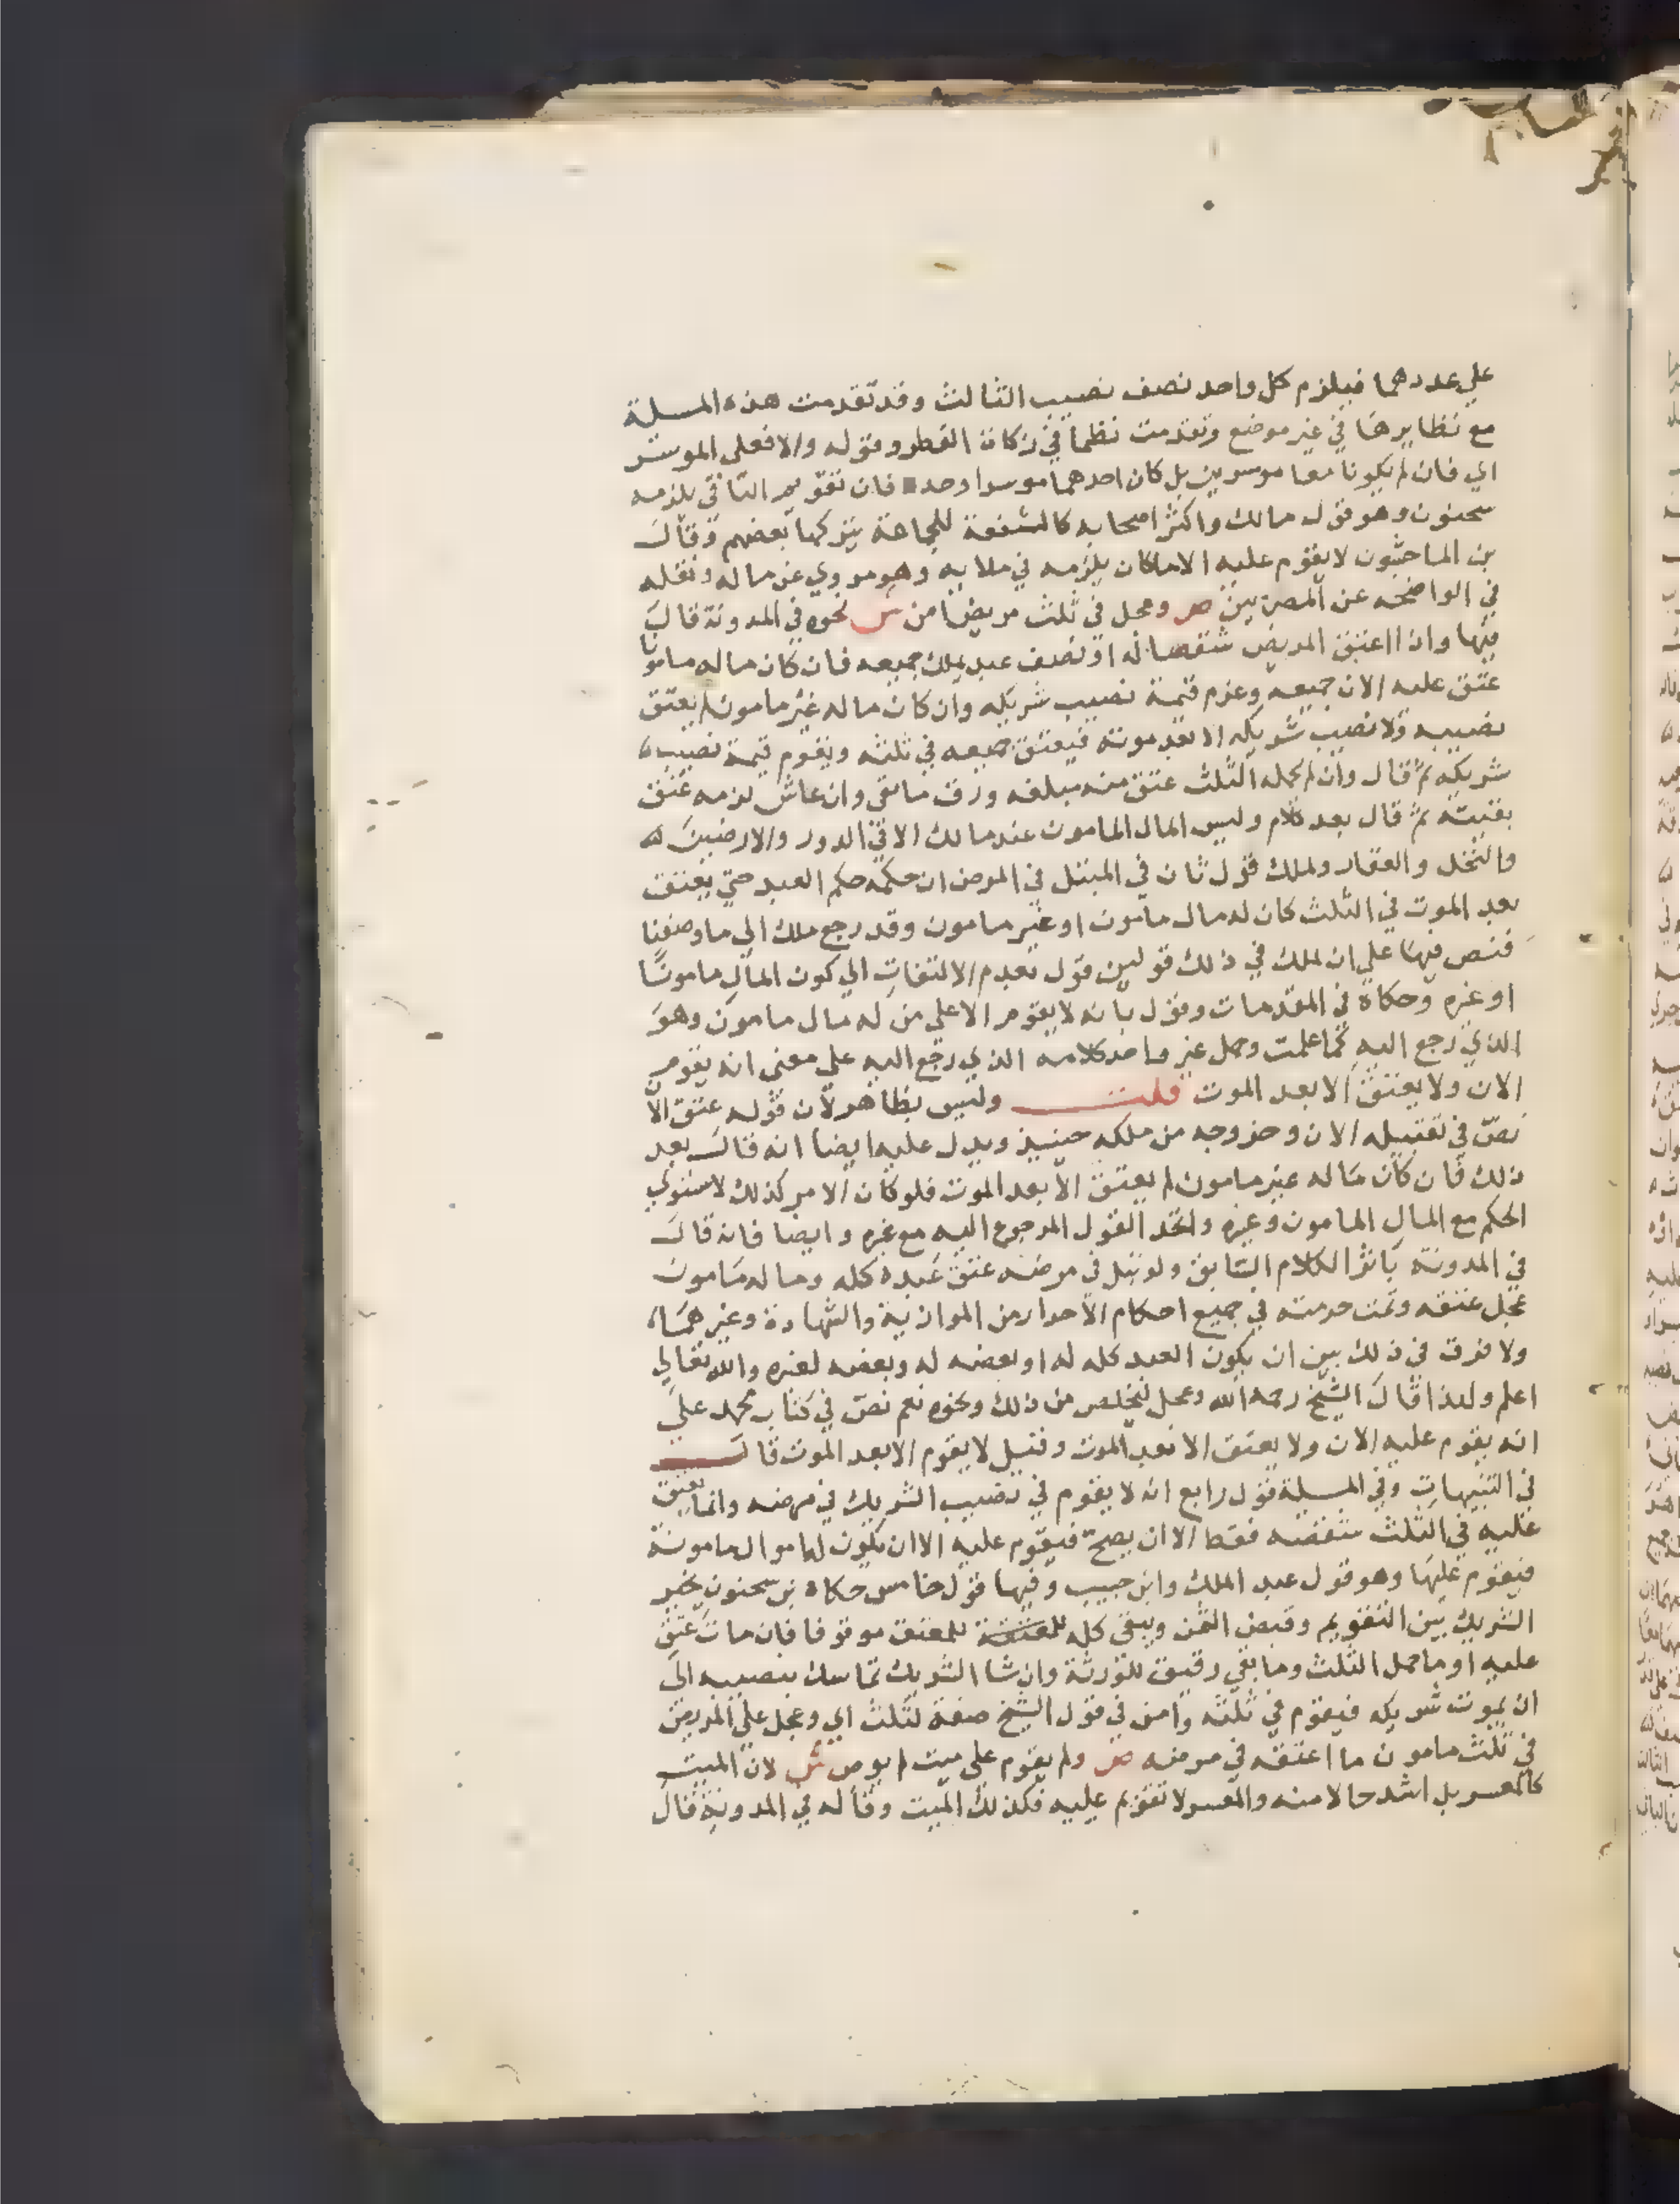 علي عددهما فيلزم كل واحد نصف نصيب الثالث وقد تقدمت هذه المسلة
مع نظايرها في غير موضع وتقدمت نظما في زكاة الفطر وقوله والا فعلى الموسر
اي فان لم يكونا معا موسرين بل كان احدهما موسرا وحده فان تقويم الباقي يلزمه
سحنون وهو قول مالك واكثر اصحابه كالشفعة للجماعة يتركها بعضهم وقال
بن الماجشون لا يقوم عليه الا ما كان يلزمه في ملايه وهو مروي عن مالك ونقله
في الواضحة عن المصريين ص وعجل في ثلث مريض امن ش نحوه في المدونة قال
فيها واذا اعتق المريض شقصا له او نصف عبد يملك جميعه فان كان ماله مامونا
عتق عليه الان جميعه وغرم قيمة نصيب شريكه وان كان ماله غير مامون لم يعتق
نصيبه ولا نصيب شريكه الا بعد موته فيعتق جميعه في ثلثه ويقوم قيمة نصيب
شريكه ثم قال وان لم يحمله الثلث عتق منه مبلغه ورق ما بقي وان عاش لزمه عتق
بقيته ثم قال بعد كلام وليس المال المامون عند مالك الا في الدور والارضين
والنخل والعقار ولملك قول ثان في المبتل في المرض ان حكمه حكم العبد حتي يعتق
بعد الموت في الثلث كان له مال مامون او غير مامون وقد رجع ملك الي ما وصفنا
فنص فيها علي ان لملك في ذلك قولين قول بعدم الالتفات الي كون المال مامونا
او غيره وحكاه في المقدمات وقول بانه لا يقوم الا علي من له مال مامون وهو
الذي رجع اليه كما علمت وحمل غير واحد كلامه الذي رجع اليه علي معني انه يقوم
الان ولا يعتق الا بعد الموت قلت وليس بظاهر لان قوله عتق الان
نص في تعجيله الان وخروجه من ملكه حينيذ ويدل عليه ايضا انه قال بعد
ذلك فان كان ماله غير مامون لم يعتق الا بعد الموت فلو كان الامر كذلك لاستوي
الحكم مع المال المامون وغيره واتحد القول المرجوع اليه مع غيره وايضا فانه قال
في المدونة باثر الكلام السابق ولو بتل في مرضه عتق عبده كله وماله مامون
عجل عتقه وتمت حرمته في جميع احكام الاحرار من الموارثة والشهادة وغيرهما
ولا فرق في ذلك بين ان يكون العبد كله له او بعضه له وبعضه لغيره والله تعالي
اعلم ولهذا قال الشيخ رحمه الله وعجل ليخلص من ذلك ونحوه نعم نص في كتاب محمد علي
انه يقوم عليه الان ولا يعتق الا بعد الموت وقيل لا يقوم الا بعد الموت قال
في التنبيهات وفي المسلة قول رابع انه لا يقوم في نصيب الشريك في مرضه وانما يعتق
عليه في الثلث شقصه فقط الا ان يصح فيقوم عليه الا ان تكون له اموال مامونة
فيقوم عليها وهو قول عبد الملك وابن حبيب وفيها قول خامس حكاه بن سحنون يخير
الشريك بين التقويم وقبض الثمن ويبقى كله للمعتق موقوفا فان مات عتق
عليه او ما حمل الثلث وما بقي رقيق للورثة وان شا الشريك تماسك بنصيبه الى
ان يموت شريكه فيقوم في ثلثه وامن في قول الشيخ صفة لثلث اي وعجل علي المريض
في ثلث مامون ما اعتقه في مرضه ص ولم يقوم على ميت لم يوص ش لان الميت
كالمعسر بل اشد حالا منه والمعسر لا تقويم عليه فكذلك الميت وقاله في المدونة قال